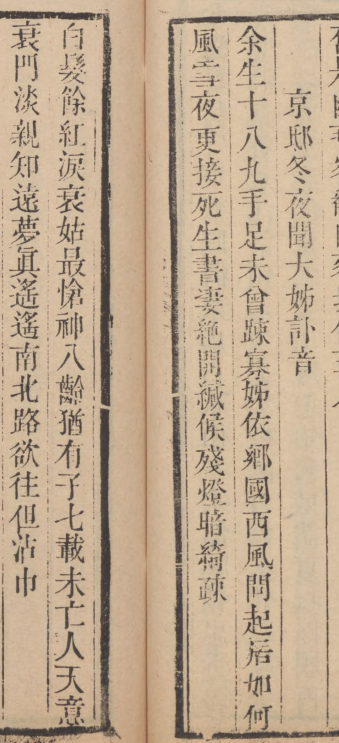 京邸冬夜聞大姊訃音
余生十八九手足未曾踈寡姊依鄉國西風問起居如何
風雪夜更接死生書淒絕開緘候殘燈暗綺疎
白髮餘紅淚衰姑最愴神八齡猶有子七載未亡人天意
衰門淡親知遠夢眞遙遙南北路欲往但沾巾